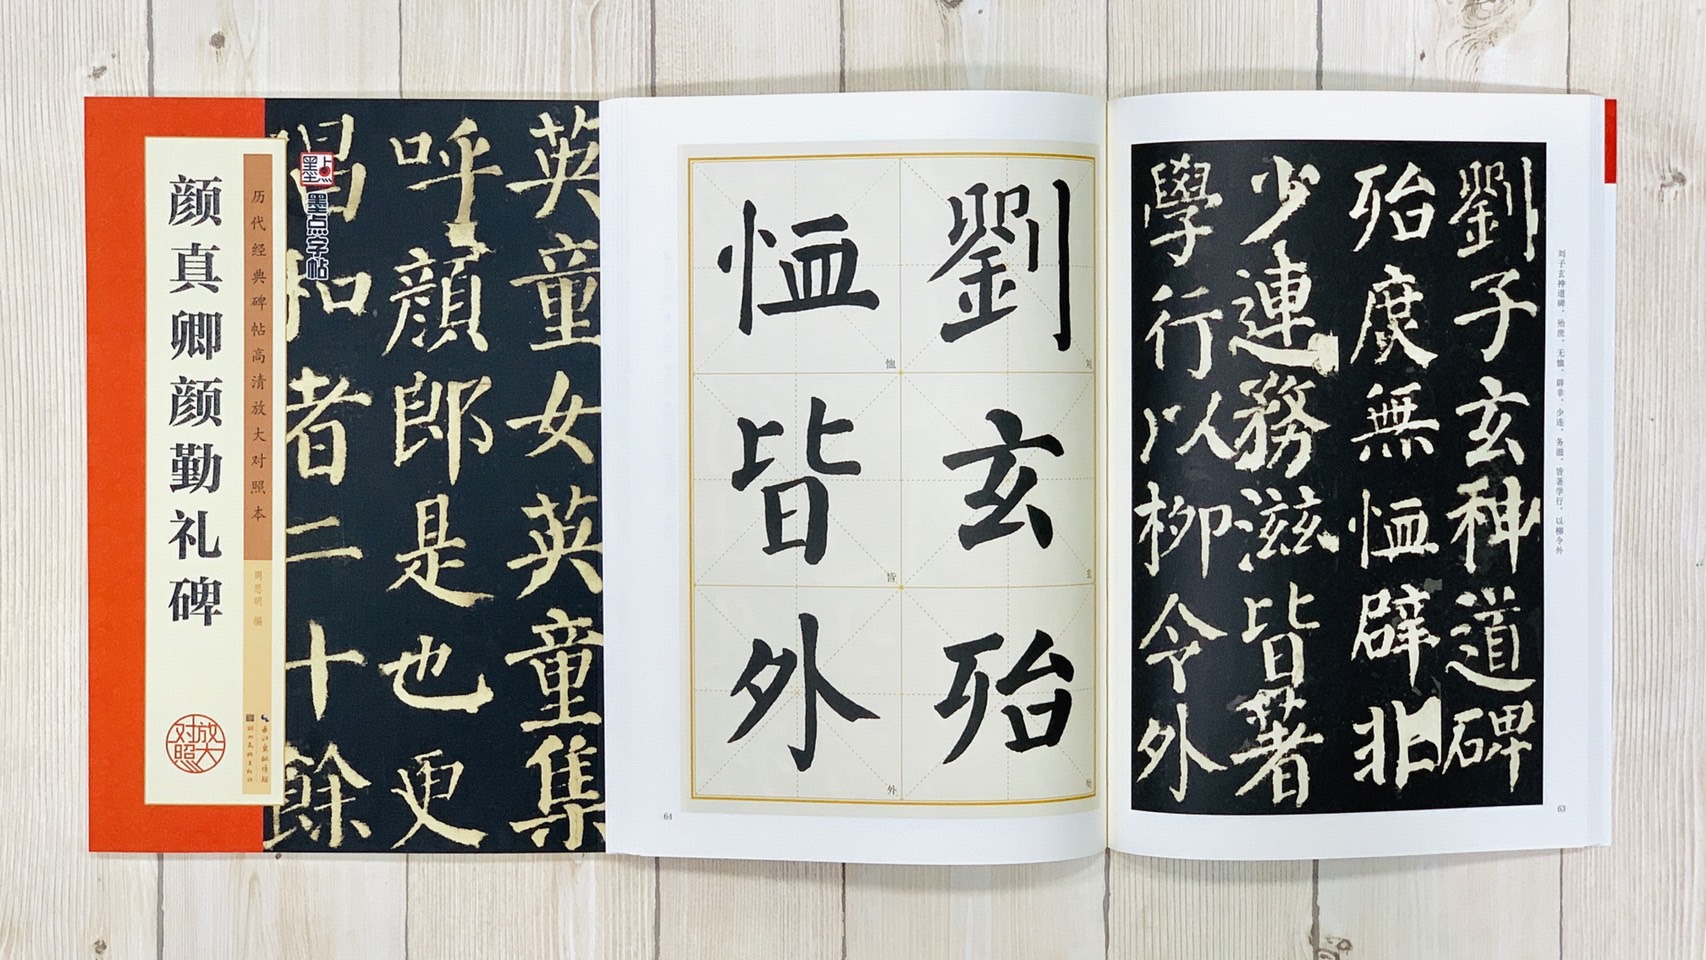 颜真卿颜勤礼碑
历代经典碑帖高清放大对照本
周思明 编
放大对照
长江出版传媒
湖北美术出版社
墨点
墨点字帖
英童女英童集
呼顔郎是也更
昌和者二十餘
劉玄殆
恤皆外
刘
玄
恤
皆
外
64
劉子玄神道碑
殆庶無恤辟非
少連務滋皆著
學行以柳令外
刘子玄神道碑。殆庶、无恤、辟非、少连、务滋,皆著学行,以柳令外
63